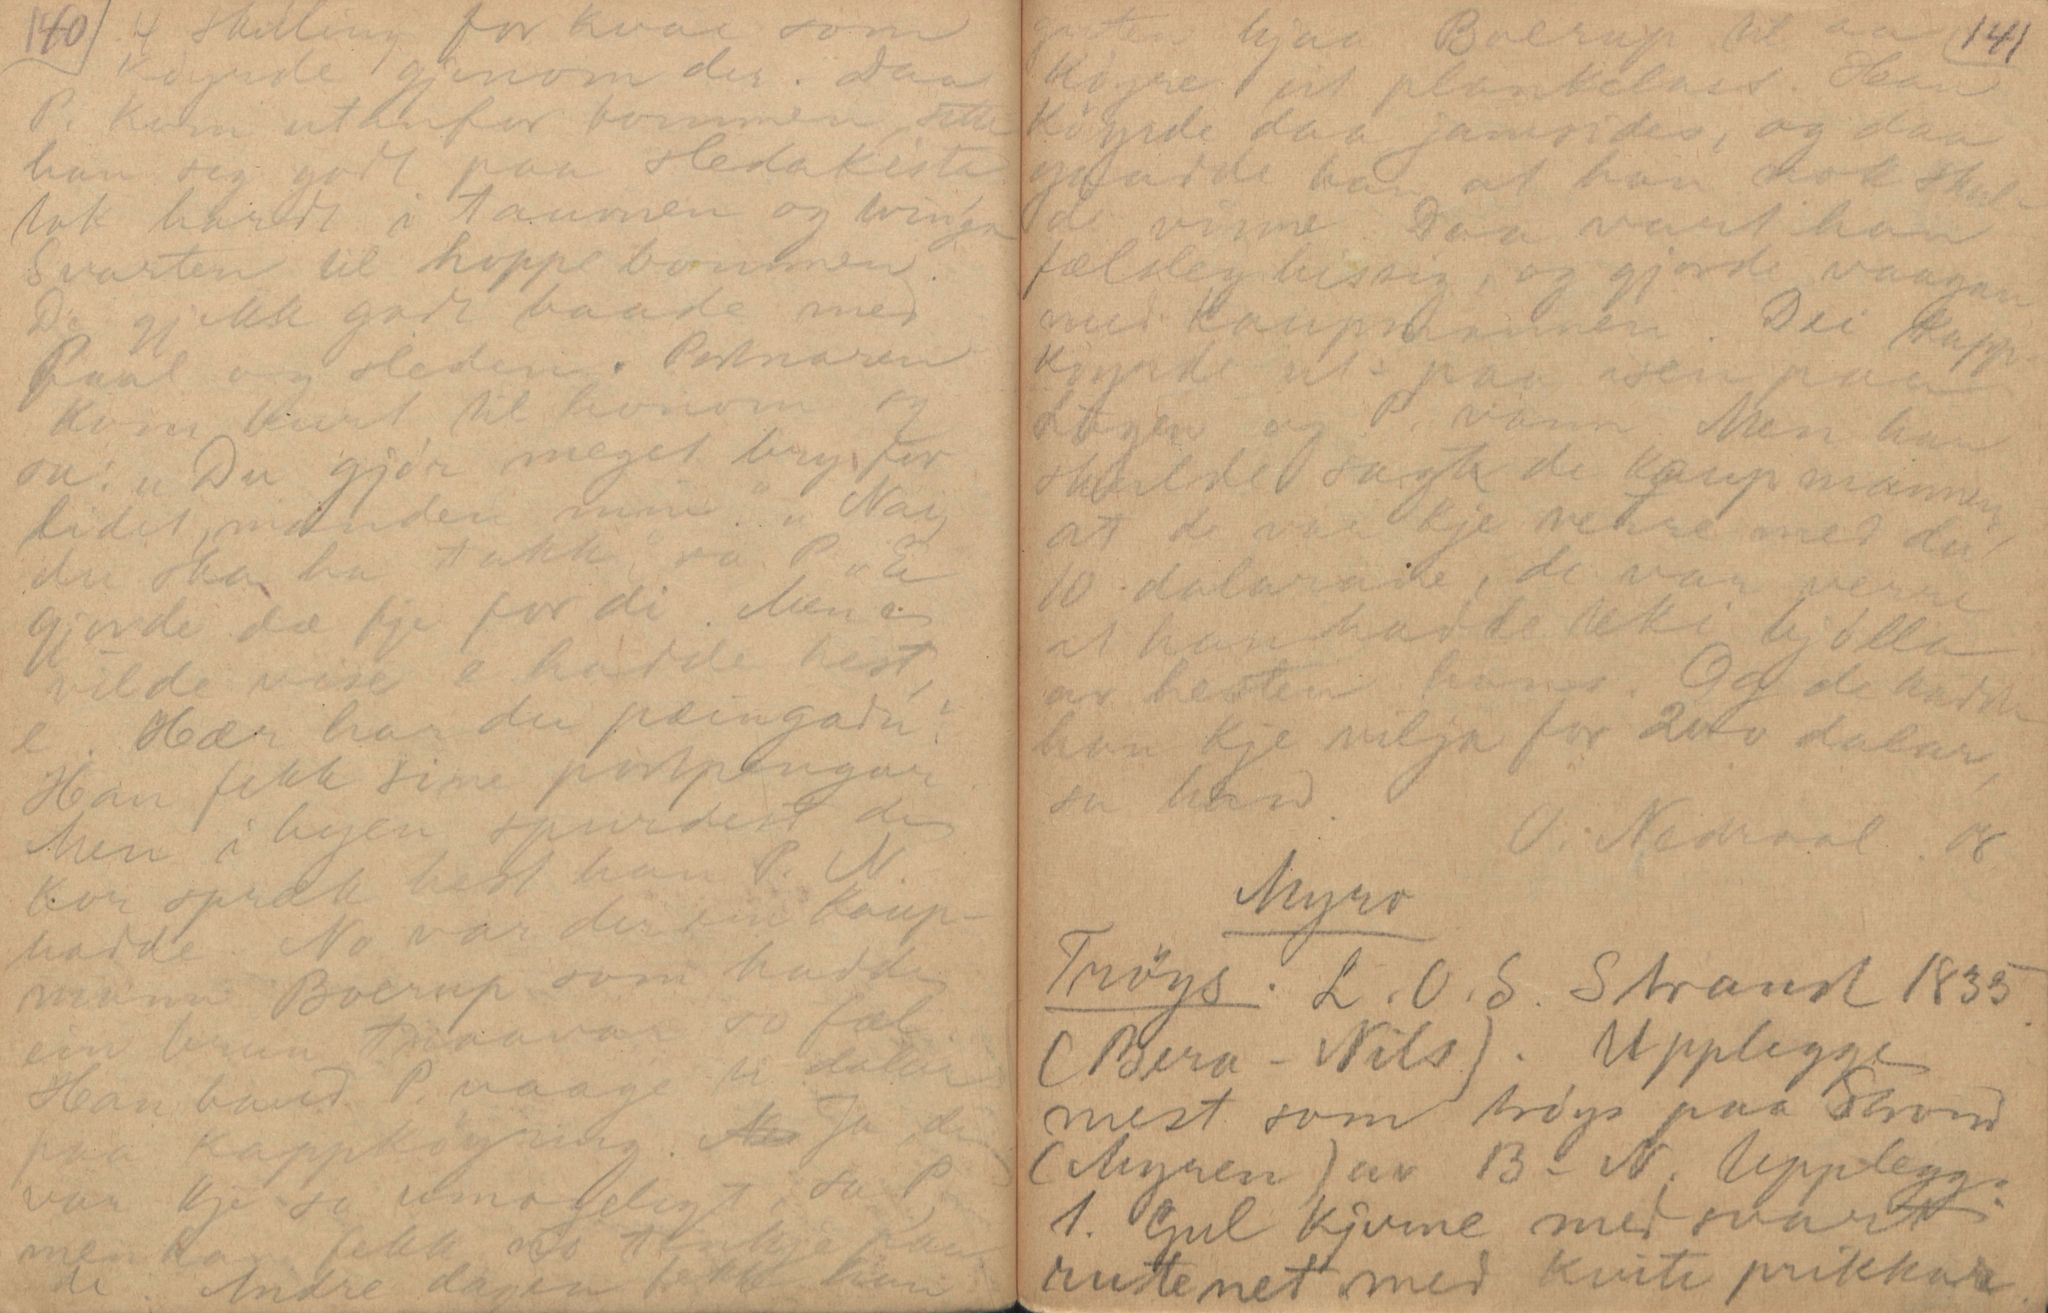 140) 4 skilling for kvar som
köyrde gjenom der. Daa
P. kom utanfor bommen, sette
han seg godt paa sledakista
tok hardt i taumen og tvinga
Svarten til hoppe bommen.
De gjekk godt baade med
Paal og sleden. Portnaren
kom burt til honom og
sa: "Du gjör meget bry for
lidet, manden min." "Nai
du ska ha takk" sa P. "E
gjorde dæ kje for di. Men e
vilde vise e hadde hest,
e. Hær har du pæingadn"
Han fekk sine portpengar
Men i byen spurdest de
kor spræk hest han P. N.
hadde. No var der ein kaup-
mann Boerup som hadde
ein brun travar so fæl
Han baud P. vaage ti dalar
paa kappköyring. Ja, de
var kje so umogeligt, sa P,
men han fekk no tenkje paa
de. Andre dagen fekk han
guten hjaa Boerup til aa 141
köyre ut plankelass. Han
köyrde daa jamsides, og daa
gaadde han at han nok skul-
de vinne. Daa vart han
fælsleg hissig, og gjorde vaagan
med kaupmannen. Dei kapp-
köyrde ut paa isen paa
Laagen og P. vann. Men han
skulde sagt de kaupmannen,
at de var kje verre med dei
10 dalarane, de var verre
at han hadde teki bjölla
av hesten hans. Og de hadde
han kje vilja for 200 dalar,
sa han.
O. Nedraal. 08
Myro
Tröys. L. O. S. Strand 1835.
(Bera-Nils). Upplegge
mest som tröys paa Strond
(Myren) av B-N. Upplegg:
1. Gul kjerne med svart
rutenet med kvite prikkar.